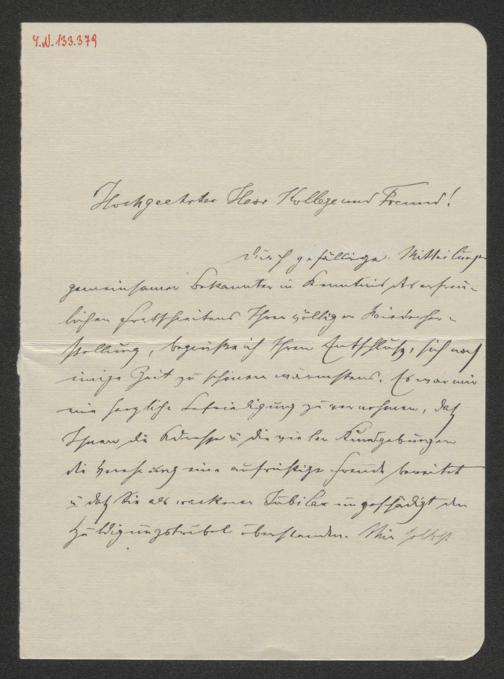 I.N. 133.379
Hochgeehrter Herr Kollege und Freund!
Durch gefällige Mitteilungen
gemeinsamer Bekannter in Kenntnis des erfreu-
lichen Fortschreitens Ihrer völligen Wiederher-
stellung, begrüße ich Ihren Entschluß, sich noch
einige Zeit zu schonen wärmstens. Es war mir
eine herzliche Befriedigung zu vernehmen, daß
Ihnen die Adresse u die vielen Kundgebungen
der Verehrung eine aufrichtige Freude bereitet
u daß Sie als wackerer Jubilar ungeschädigt den
Huldigungstrubel überstanden. Mir selbst